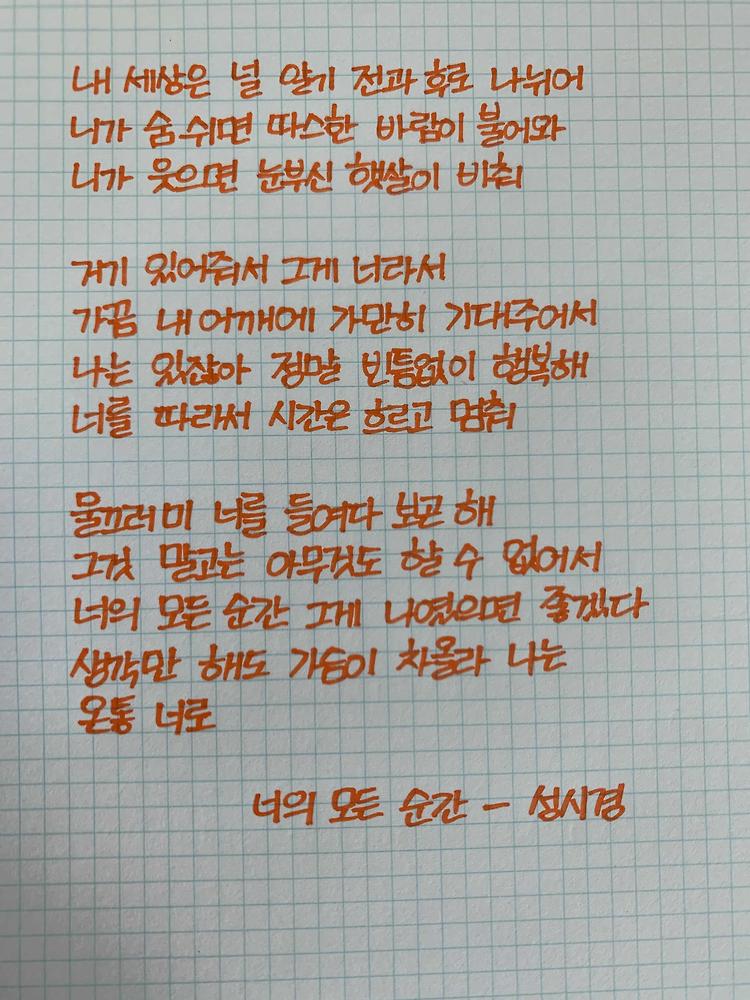 내 세상은 널 알기 전과 후로 나뉘어
니가 숨 쉬면 따스한 바람이 불어와
니가 웃으면 눈부신 햇살이 비춰
거기 있어줘서 그게 너라서
가끔 내 어깨에 가만히 기대주어서
나는 있잖아 정말 빈틈없이 행복해
너를 따라서 시간은 흐르고 멈춰
물끄러미 너를 들여다 보곤 해
그것 말고는 아무것도 할 수 없어서
너의 모든 순간 그게 나였으면 좋겠다
생각만 해도 가슴이 차올라 나는
온통 너로
너의 모든 순간 - 성시경